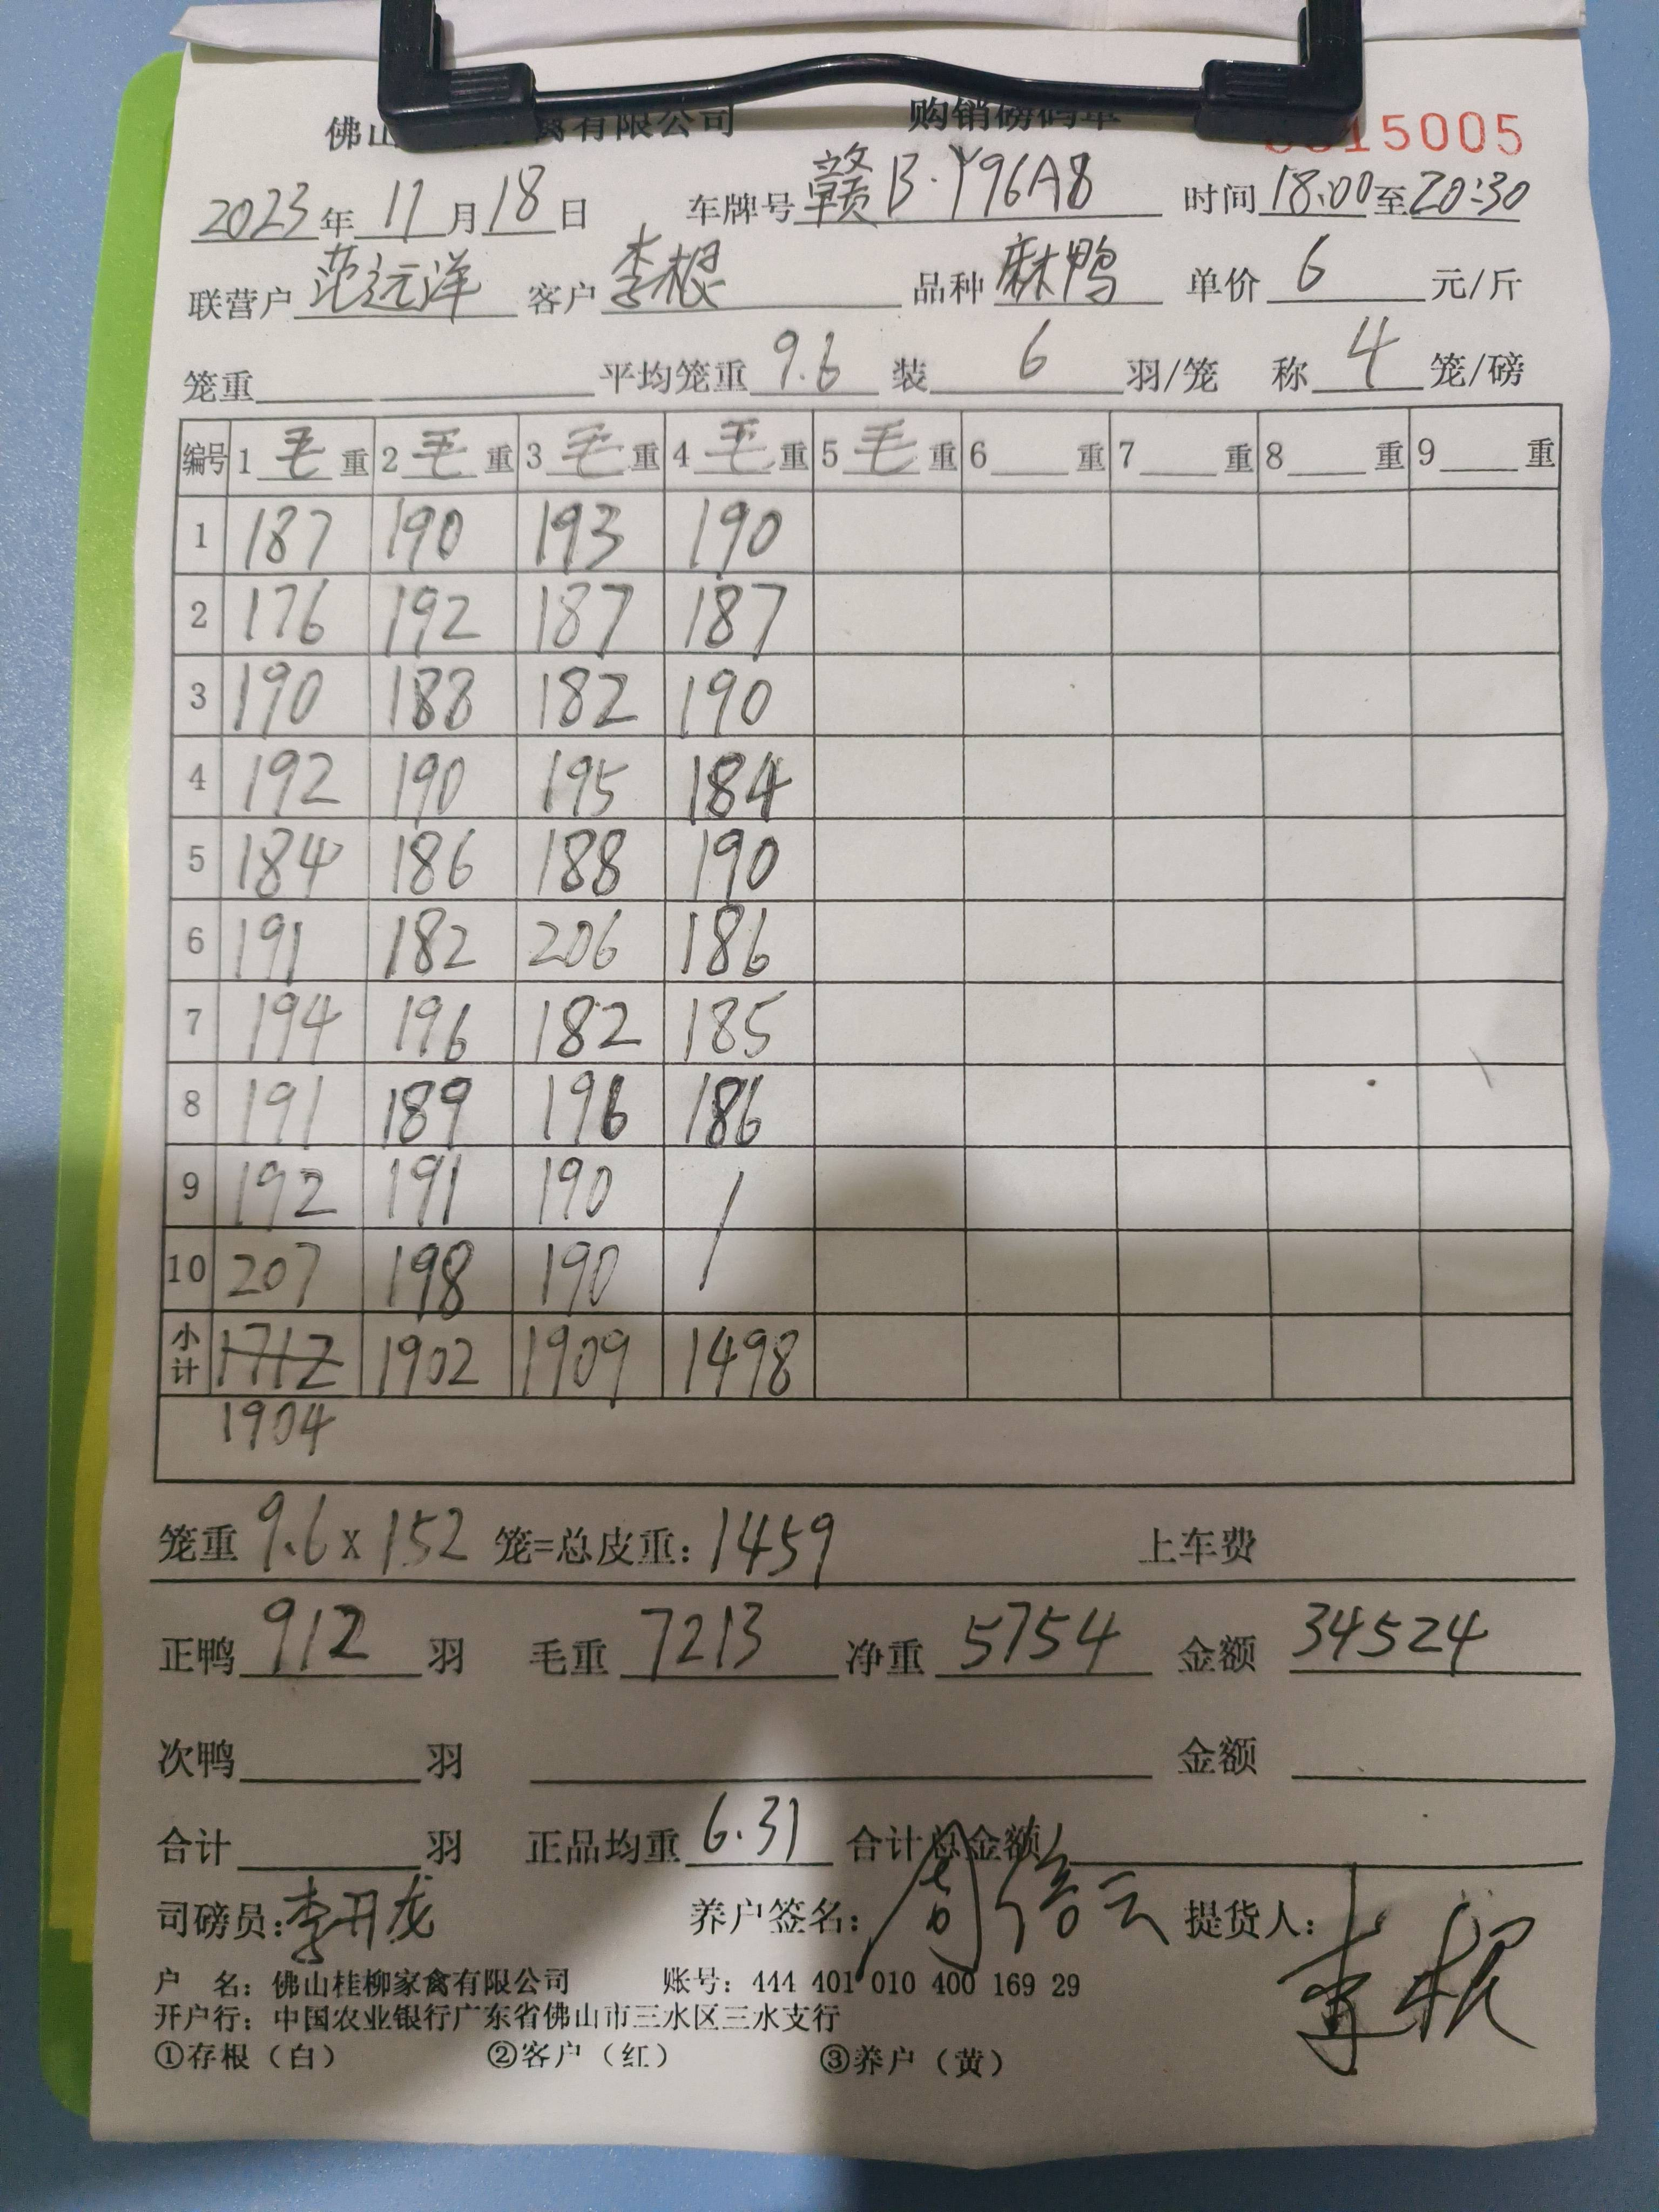 佛山 禽有限公司 购销磅码单 15005
2023年 11月18日 车牌号 赣B·Y96A8 时间18:00至20:30
联营户 范远洋 客户 李根 品种 麻鸭 单价 6 元/斤
笼重 平均笼重 9.6 装 6 羽/笼 称 4 笼/磅
编号 1毛重 2毛重 3毛重 4毛重 5毛重 6 重 7 重 8 重 9 重
1 187 190 193 190
2 176 192 187 187
3 190 188 182 190
4 192 190 195 184
5 184 186 188 190
6 191 182 206 186
7 194 196 182 185
8 191 189 196 186
9 192 191 190 /
10 207 198 190 /
小计 1712 1902 1909 1498
1904
笼重 9.6 x 152 笼=总皮重: 1459 上车费
正鸭 912 羽 毛重 7213 净重 5754 金额 34524
次鸭 羽 金额
合计 羽 正品均重 6.31 合计总金额
司磅员: 李开龙 养户签名: 提货人: 李根
户 名: 佛山桂柳家禽有限公司 账号: 444 401 010 400 169 29
开户行: 中国农业银行广东省佛山市三水区三水支行
①存根（白） ②客户（红） ③养户（黄）